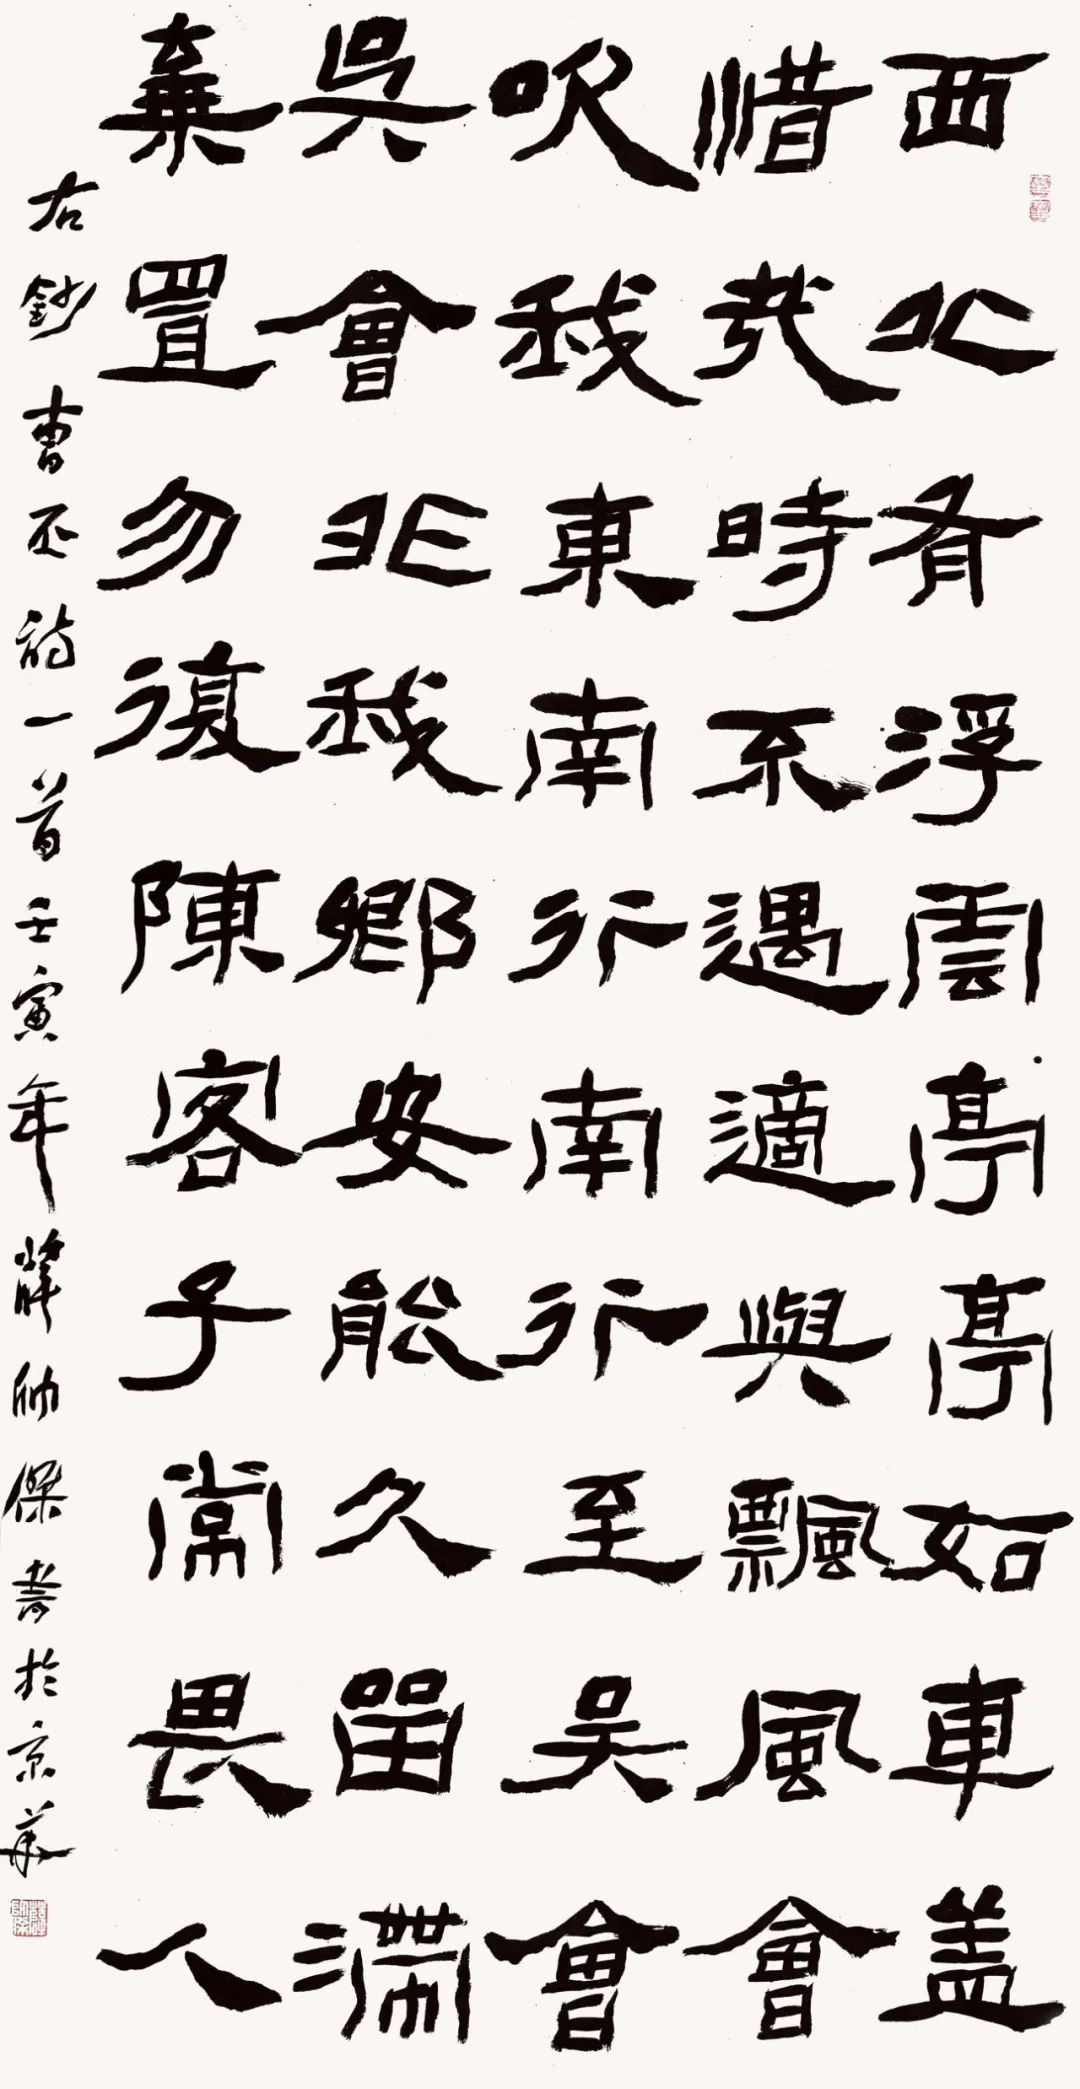 西北有浮雲亭亭如車盖
惜哉時不遇適與飄風會
吹我東南行南行至吴會
吴會非我鄉安能久留滯
棄置勿復陳客子常畏人
右鈔曹丕詩一首壬寅年薛帥傑書於京華